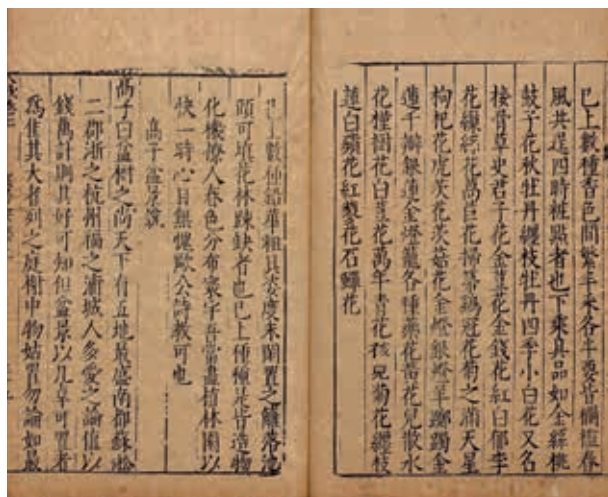 已上數種香色間繁丰采各半要皆欄檻春
風共逞四時粧點者也下乘具品如金絲桃
鼓子花秋牡丹纏枝牡丹四季小白花又名
接骨草史君子花金荳花金錢花紅白郁李
花繅絲花萵苣花掃箒鷄冠花菊之滿天星
枸杞花虎茨花茨菇花金燈銀燈羊躑躅金
蓮千瓣銀蓮金燈籠各種藥花黃花兒散水
花槿樹花白荳花萬年青花孩兒菊花纏枝
蓮白蘋花紅蓼花石蟬花
已上數種鉛華粗具姿度未閑置之籬落池
頭可填花林踈缺者也已上種種是皆造物
化機撩人春色分布寰宇吾當盡植林園以
快一時心目無愧歐公詩教可也
高子盆景說
高子曰盆樹之尚天下有五地最盛南都蘇松
二郡浙之杭州福之浦城人多愛之論值以
錢萬計則其好可知但盆景以几卓可置者
爲佳其大者列之庭榭中物姑置勿論如最